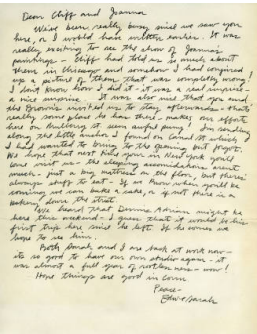 Dear Cliff and Joanna
We've been really busy since we saw you
here, or I would have written earlier. It was
really exciting to see the show of Joanna's
paintings - Cliff had told us so much about
them in Chicago and somehow I had conjured
up a picture of them that was completely wrong!
I don't know how I did it - it was a real surprise -
a nice surprise. It was also nice that you and
the Browns invited us to stay afterwards - that's
really some place he has there - makes our efforts
here on building it seem awful puny. I am sending
along the little anchor I found on Canal St. which
I had wanted to bring to the opening but forgot.
We hope that next time you're in New York you'll
come visit us - the sleeping accomodations aren't
much - just a big mattress on the floor, but there's
always stuff to eat - If we know when you'll be
coming we can bake a cake, or if not there is a
bakery down the street.
We heard that Dennis Adrian might be
here this weekend - I guess that it would be his
first trip here since he left. If he comes we
hope to see him.
Both Sarah and I are back at work now -
its so good to have our own studio again - it
was almost a full year of restlessness - wow!
Hope things are good in Conn.
Peace -
Ed & Sarah